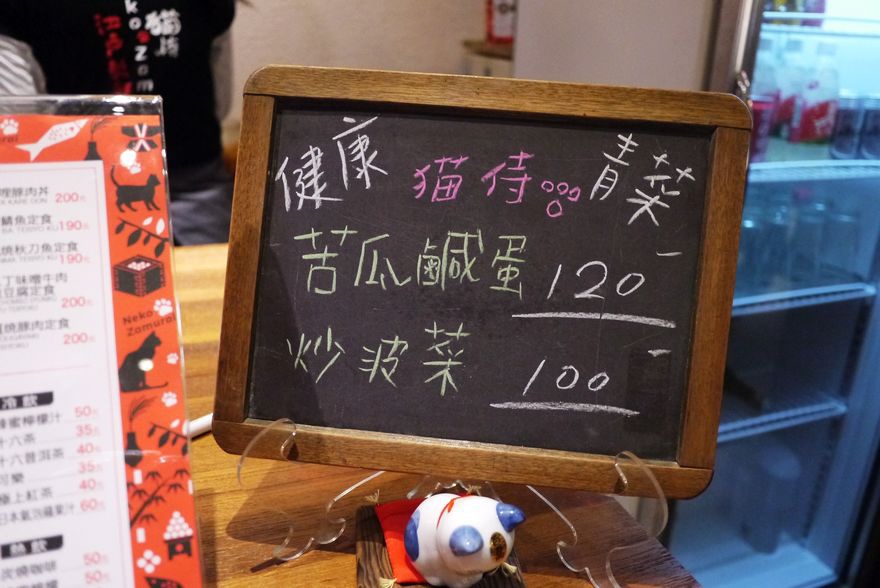 猫侍
健康 猫侍 青菜
苦瓜鹹蛋 120
炒波菜 100
豚肉丼 200元
KARE DON
鯖魚定食 190元
燒秋刀魚定食 190元
丁味噌牛肉
豆腐定食 200元
燒豚肉定食 200元
Neko Zamurai
冷飲
蜂蜜檸檬汁 50元
十六茶 35元
十六普洱茶 40元
可樂 35元
極上紅茶 40元
日本氣泡蘋果汁 60元
熱飲
炭燒咖啡 50元
50元